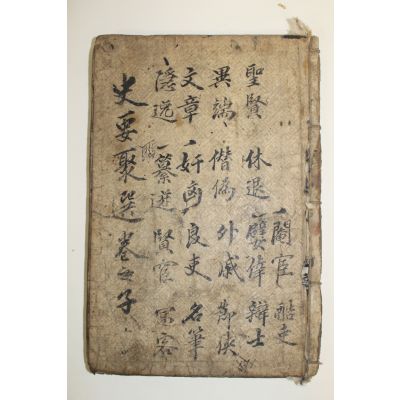 閹宦 酷吏
聖賢 休退 嬖倖 辯士
異端 僭僞 外戚 俠
文章 奸凶 良吏 名筆
隱逸 簒逆 賢宦 客
史要聚選 卷之子